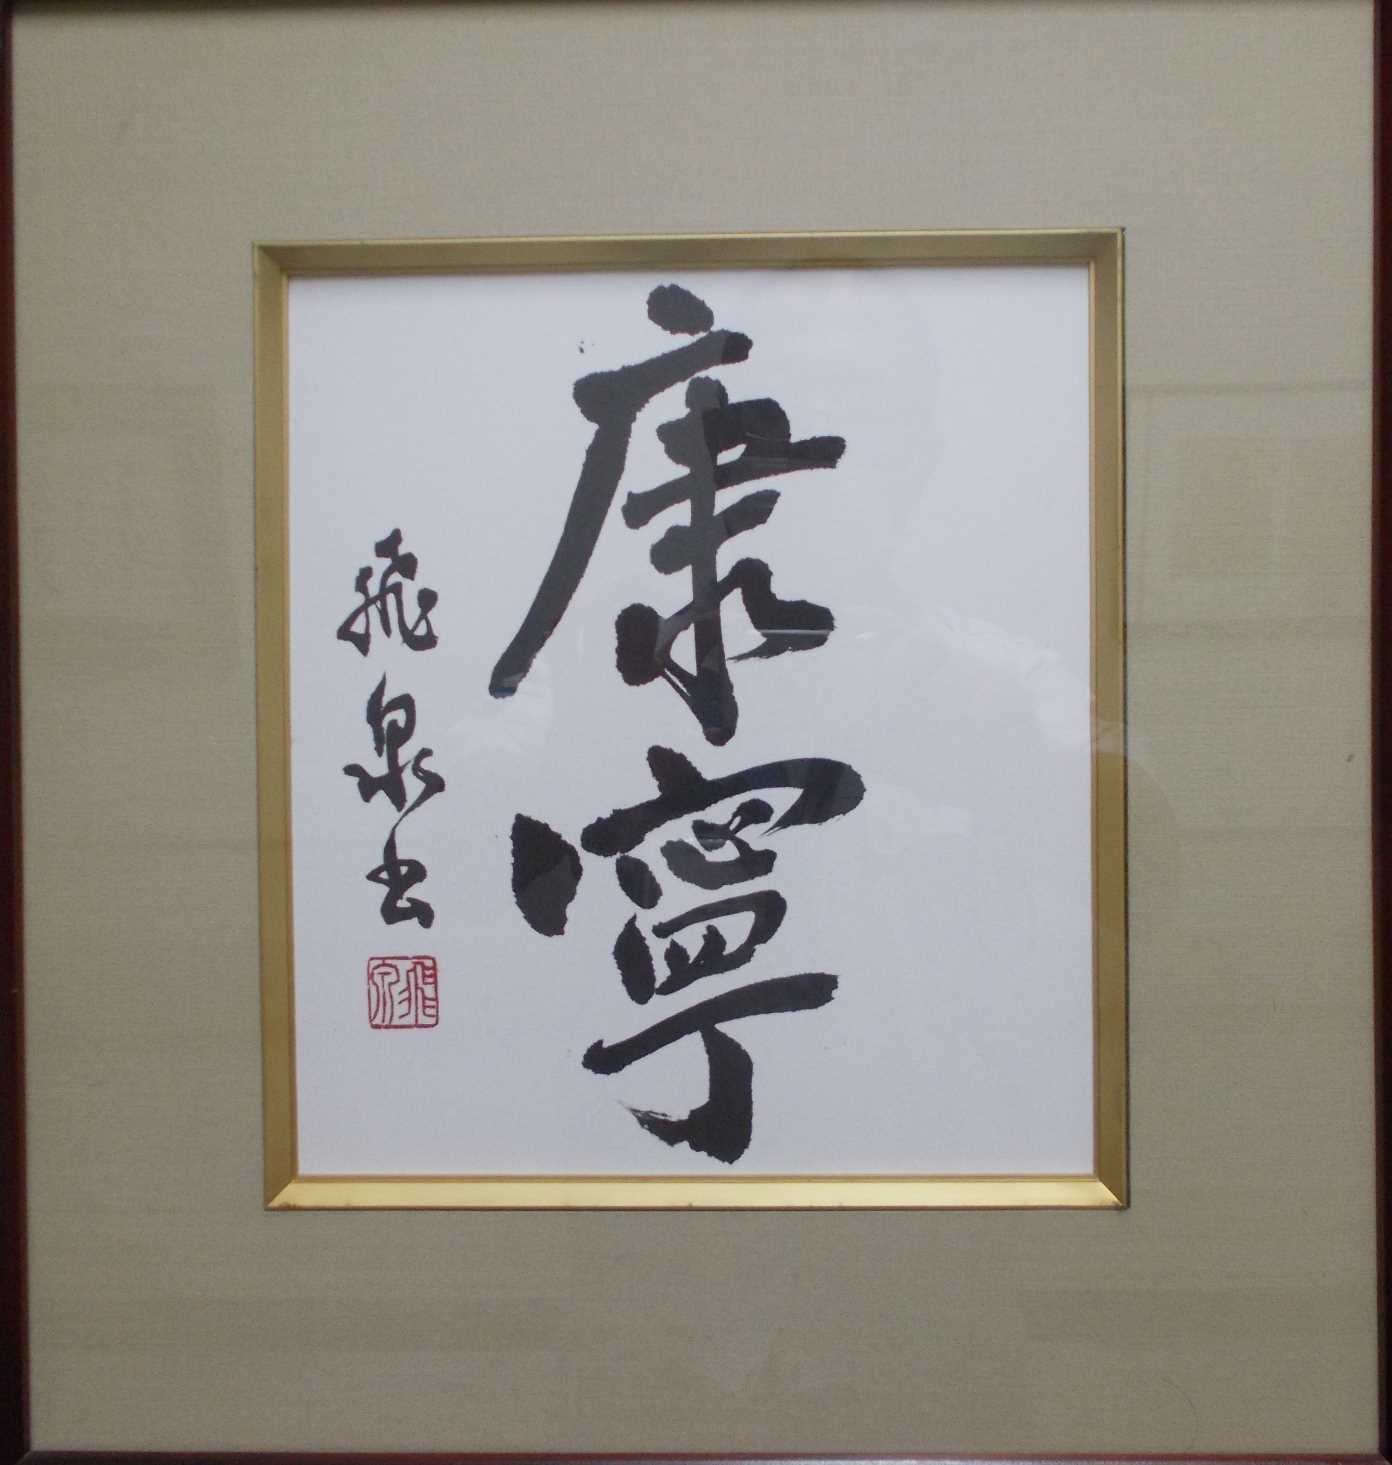 康寧
飛泉书
飛泉